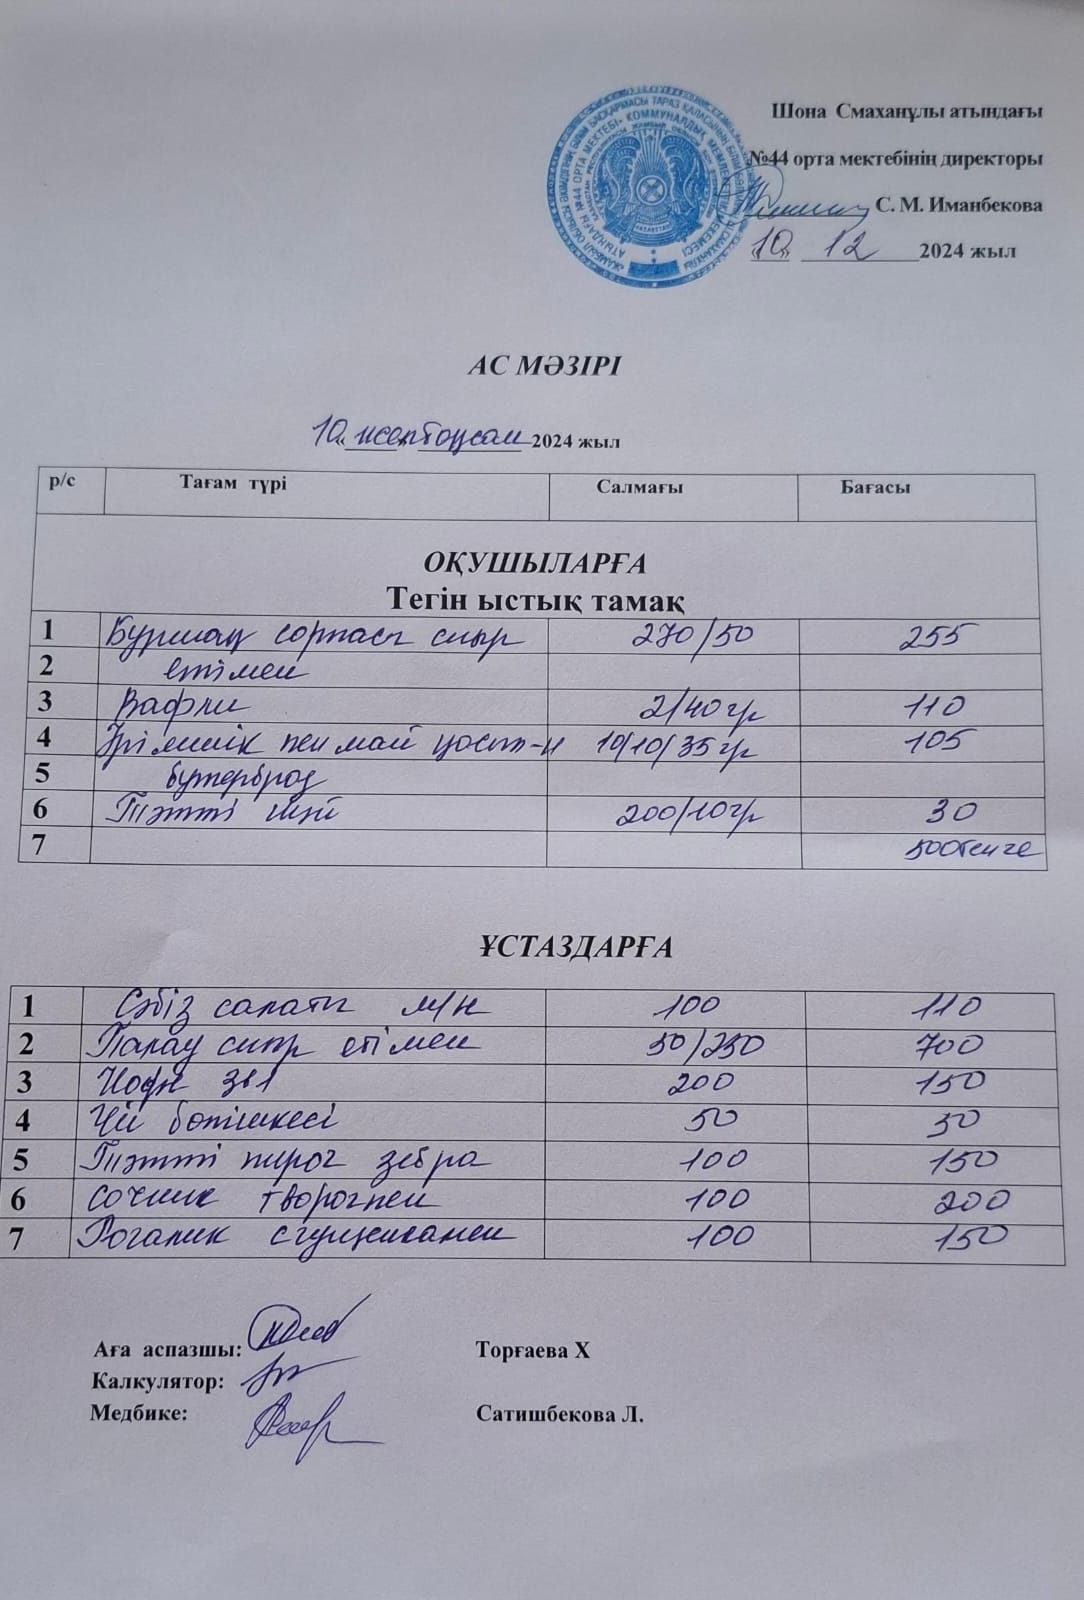 Шона Смаханұлы атындағы
№44 орта мектебінің директоры
С. М. Иманбекова
10 12 2024 жыл
АС МӘЗІРІ
10 желтоқсан 2024 жыл
р/с Тағам түрі Салмағы Бағасы
ОҚУШЫЛАРҒА
Тегін ыстық тамақ
1 Бұршақ сорпасы сиыр 270/50 255
2 етімен
3 Вафли 2/40гр 110
4 Ірімшік пен май қосыл-н 10/10/35гр 105
5 бутерброд
6 Тәтті шәй 200/10гр 30
7 500тенге
ҰСТАЗДАРҒА
1 Сәбіз салаты м/н 100 110
2 Палау сиыр етімен 50/250 700
3 Кофе 3в1 200 150
4 Үй бөлішкесі 50 50
5 Тәтті пирог зебра 100 150
6 Сочник творогпен 100 200
7 Рогалик сгущенкамен 100 150
Аға аспазшы: Торғаева Х
Калкулятор:
Медбике: Сатишбекова Л.